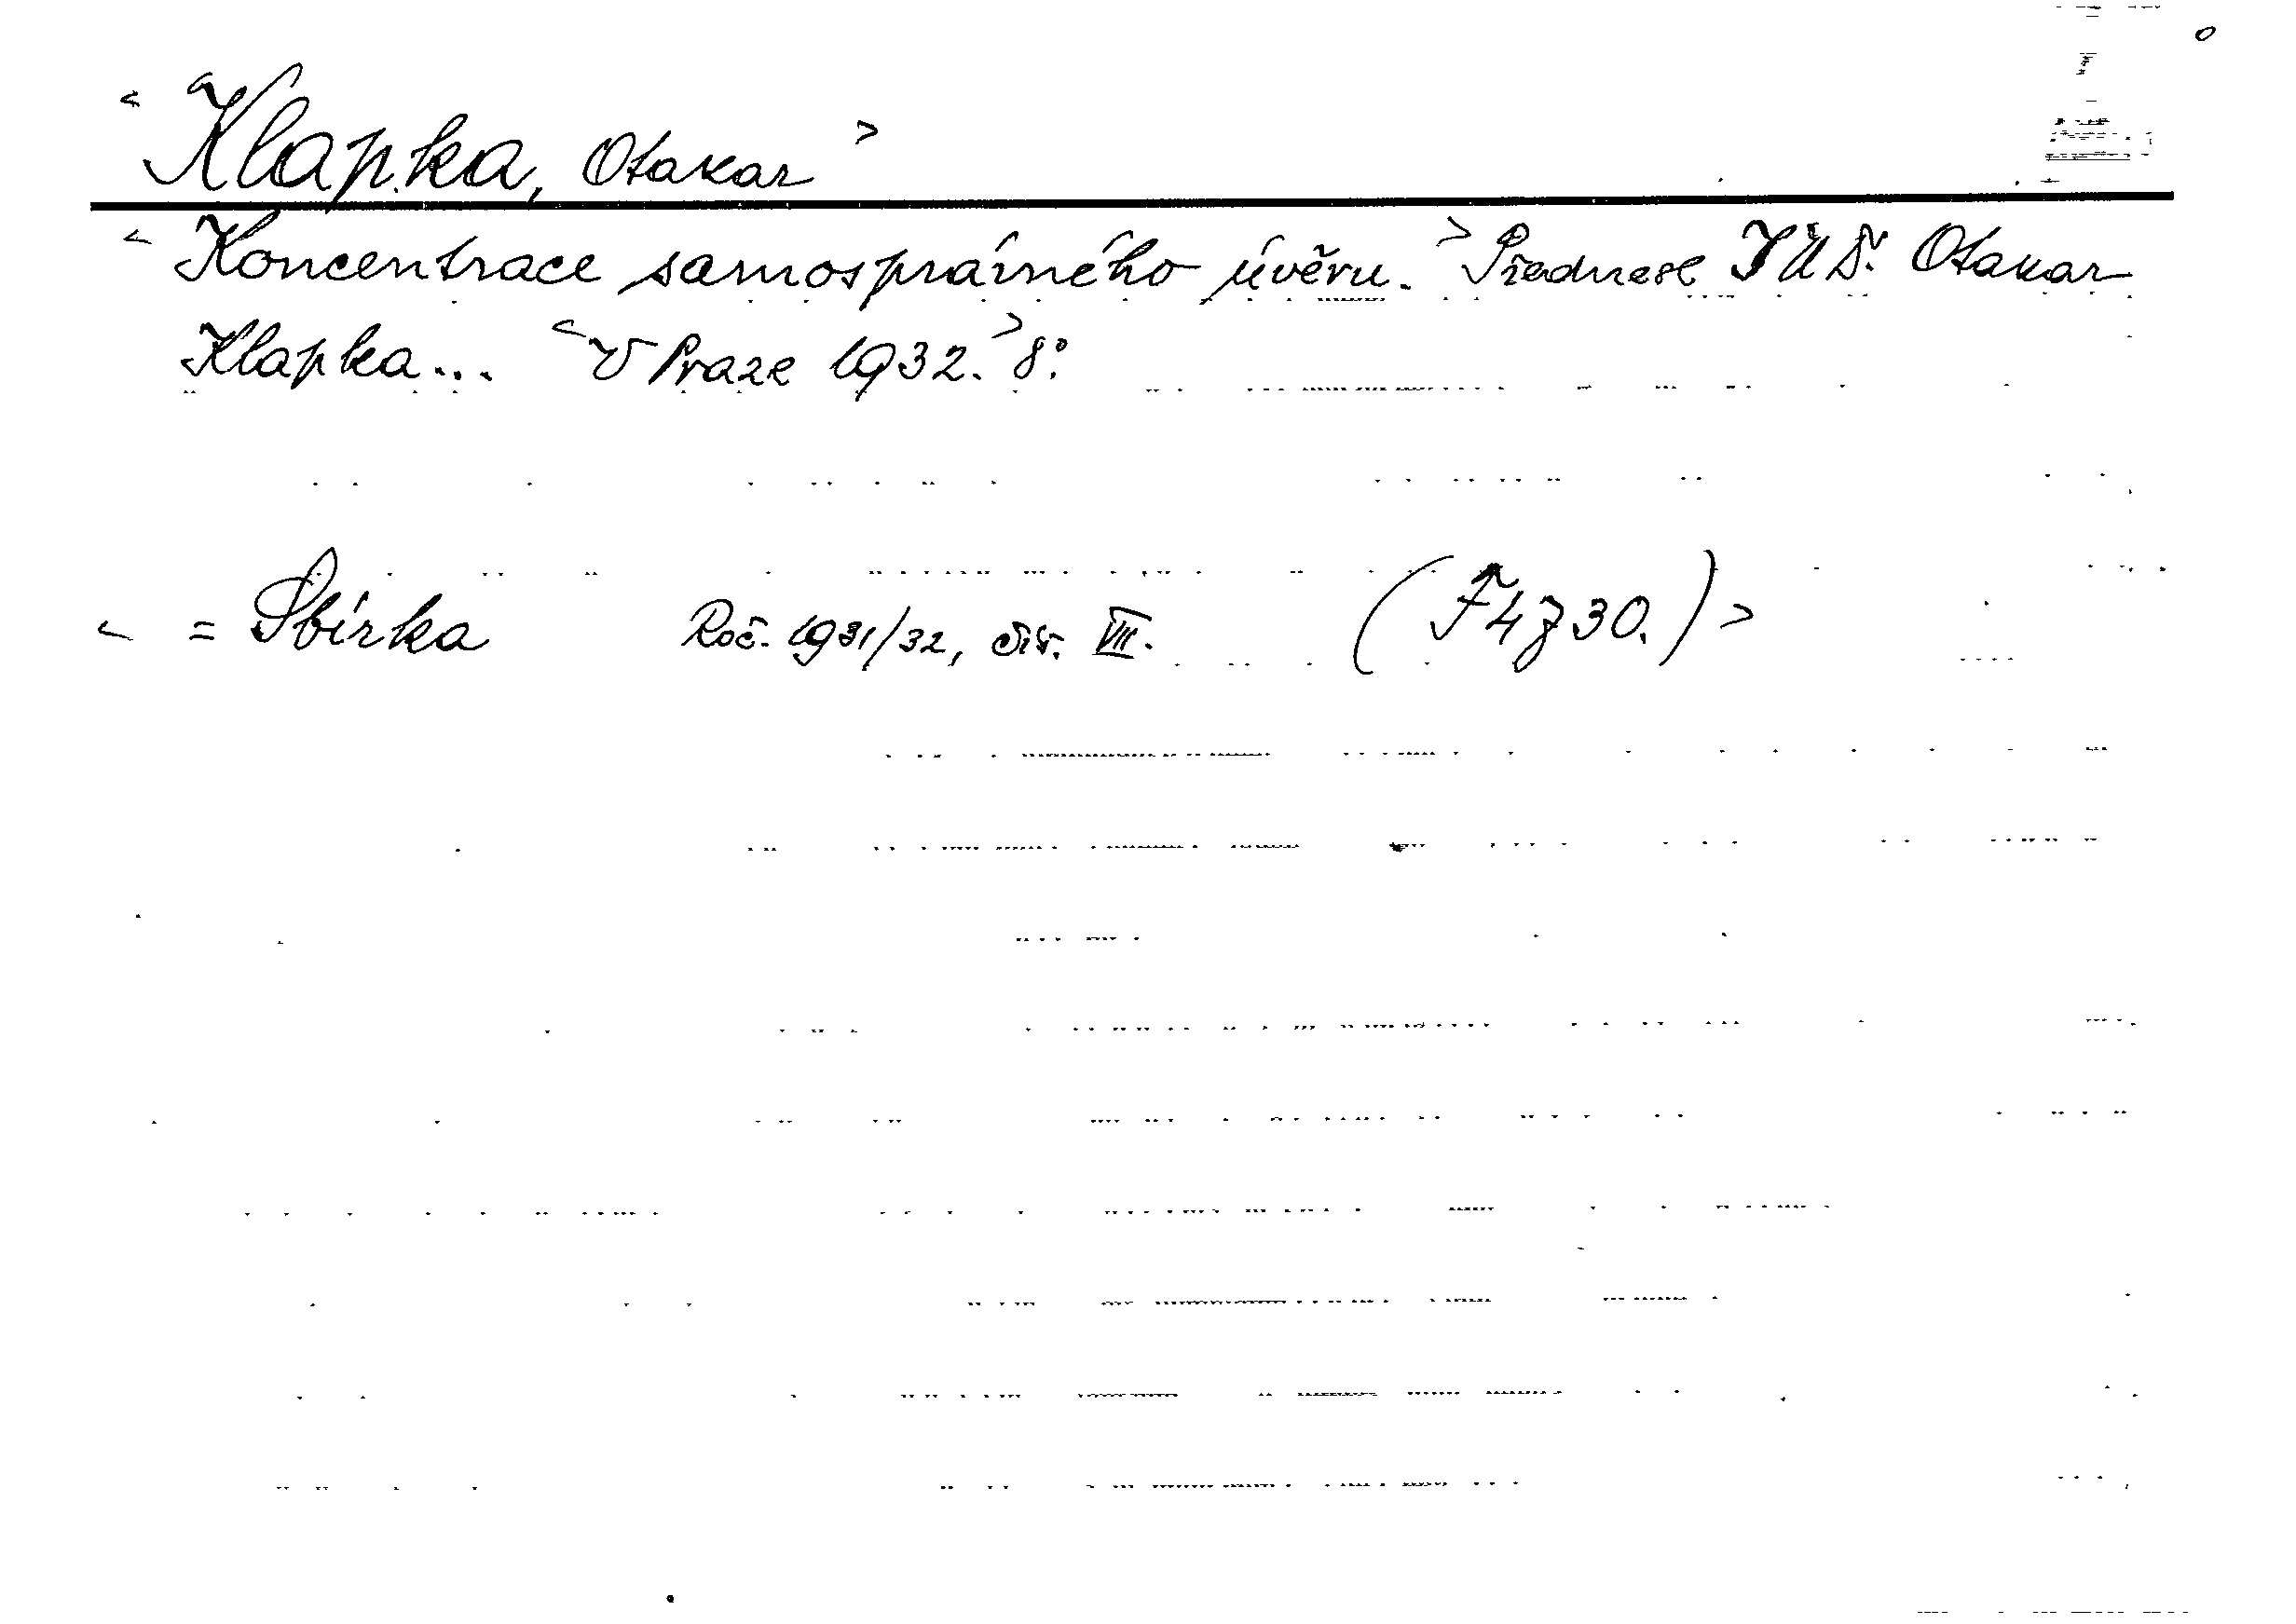 < Klapka, Otakar >
< Koncentrace samosprávného úvěru. > Přednesl JUDr. Otakar
Klapka... < V Praze 1932. > 8°.
< = Sbírka Roč. 1931/32, čís. VII. (F4730.) >